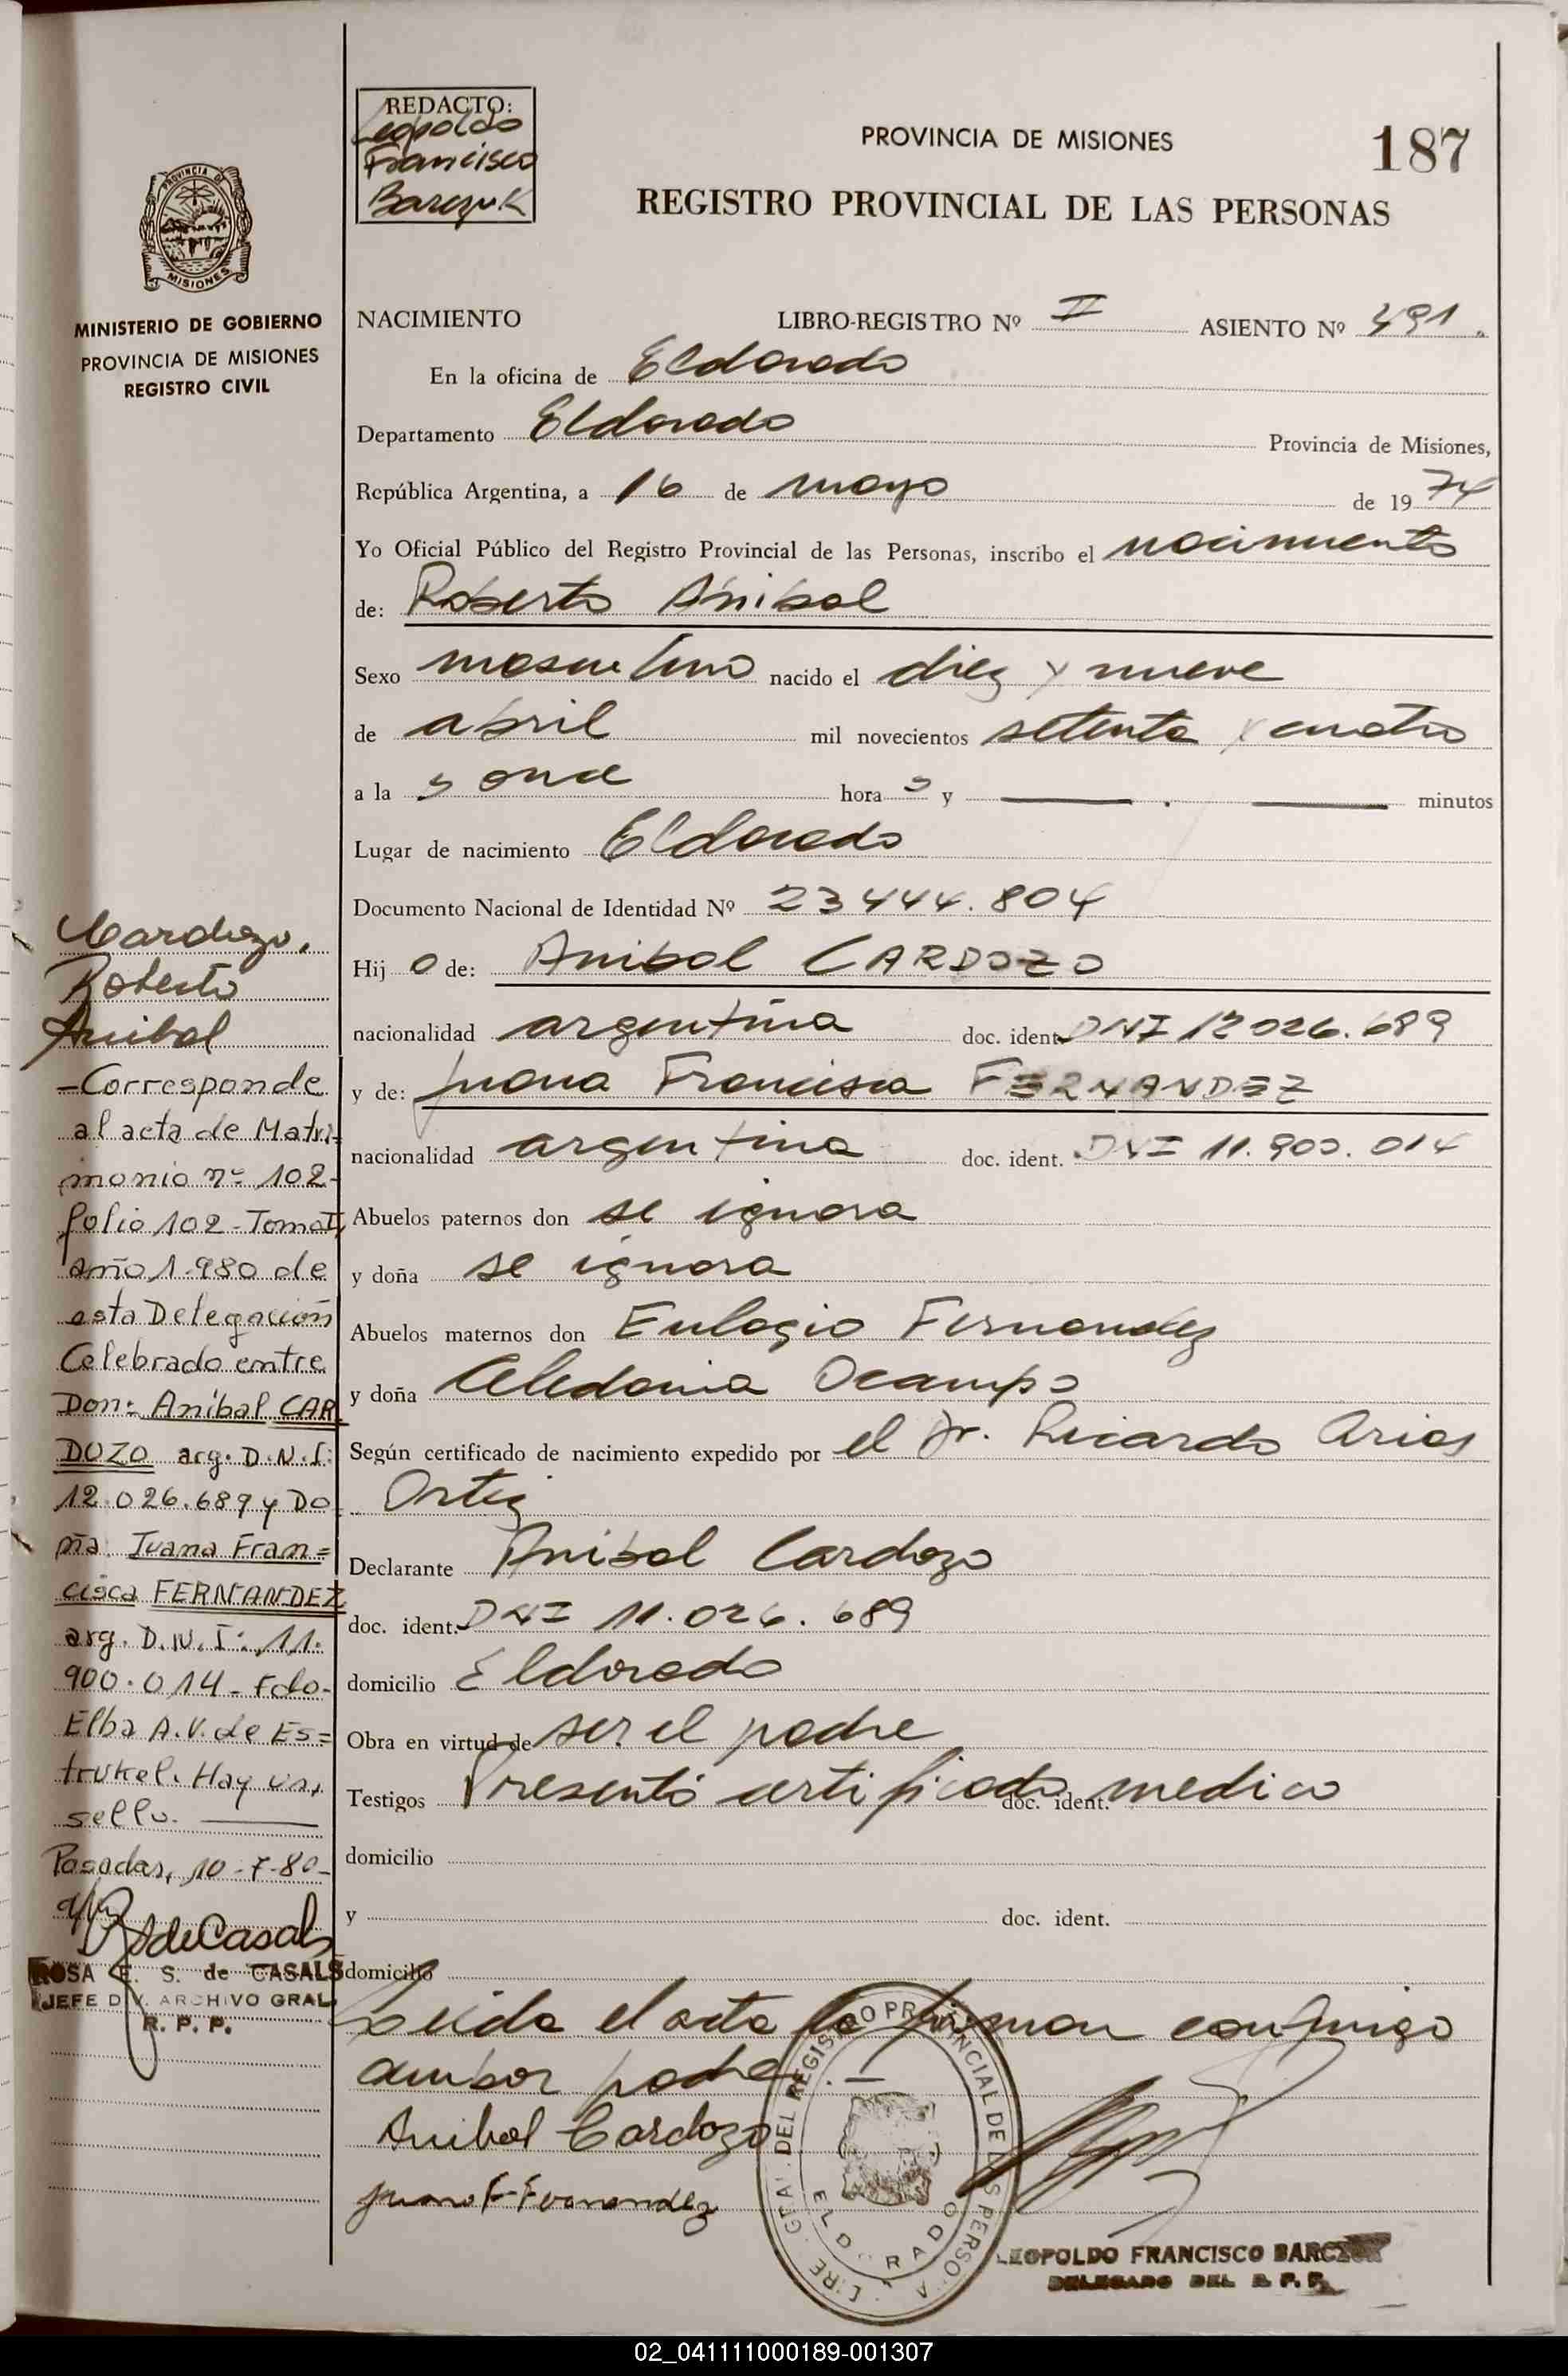 REDACTO:
Leopoldo
Francisco
Barczuk
PROVINCIA DE MISIONES
187
REGISTRO PROVINCIAL DE LAS PERSONAS
PROVINCIA DE
MISIONES
MINISTERIO DE GOBIERNO
PROVINCIA DE MISIONES
REGISTRO CIVIL
NACIMIENTO LIBRO-REGISTRO Nº II ASIENTO Nº 491.
En la oficina de Eldorado
Departamento Eldorado Provincia de Misiones,
República Argentina, a 16 de mayo de 1974
Yo Oficial Público del Registro Provincial de las Personas, inscribo el nacimiento
de: Roberto Anibal
Sexo masculino nacido el diez y nueve
de abril mil novecientos setenta y cuatro
a la s once hora s y minutos
Lugar de nacimiento Eldorado
Documento Nacional de Identidad Nº 23444.804
Hij o de: Anibal CARDOZO
nacionalidad argentina doc. ident. DNI 12026.689
y de: Juana Francisca FERNANDEZ
nacionalidad argentina doc. ident. DNI 11.900.014
Abuelos paternos don se ignora
y doña se ignora
Abuelos maternos don Eulogio Fernandez
y doña Celedonia Ocampo
Según certificado de nacimiento expedido por el Dr. Ricardo Arias
Ortiz
Declarante Anibal Cardozo
doc. ident. DNI 11.026.689
domicilio Eldorado
Obra en virtud de ser el padre
Testigos Presentó certificado medico doc. ident.
domicilio
y doc. ident.
domicilio
Leida el acta la firman conmigo
ambos padres.—
Anibal Cardozo
Juana F. Fernandez
ELDORADO
LEOPOLDO FRANCISCO BARCZUK
DELEGADO DEL R. P. P.
Cardozo,
Roberto
Anibal
-Corresponde
al acta de Matri-
monio nº 102-
folio 102-Tomo I,
año 1.980 de
esta Delegación
Celebrado entre
Don: Aníbal CAR
DOZO arg. D.N.I:
12.026.689 y Do
ña: Juana Fran=
cisca FERNANDEZ
arg. D.N.I: 11.
900.014- Fdo-
Elba A.V. de Es=
trukel. Hay un,
sello.
Posadas, 10-7-80-
AdeCasals
ROSA E. S. de CASALS
JEFE DIV. ARCHIVO GRAL
R. P. P.
02_041111000189-001307